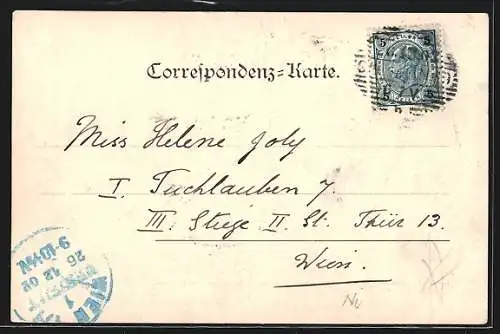 Correspondenz=Karte.
5 5
Miss Helene Joly
I. Tuchlauben 7.
III. Stiege II. St. Thür 13.
Wien.
WIEN 1
26 12 02
9-10¼V